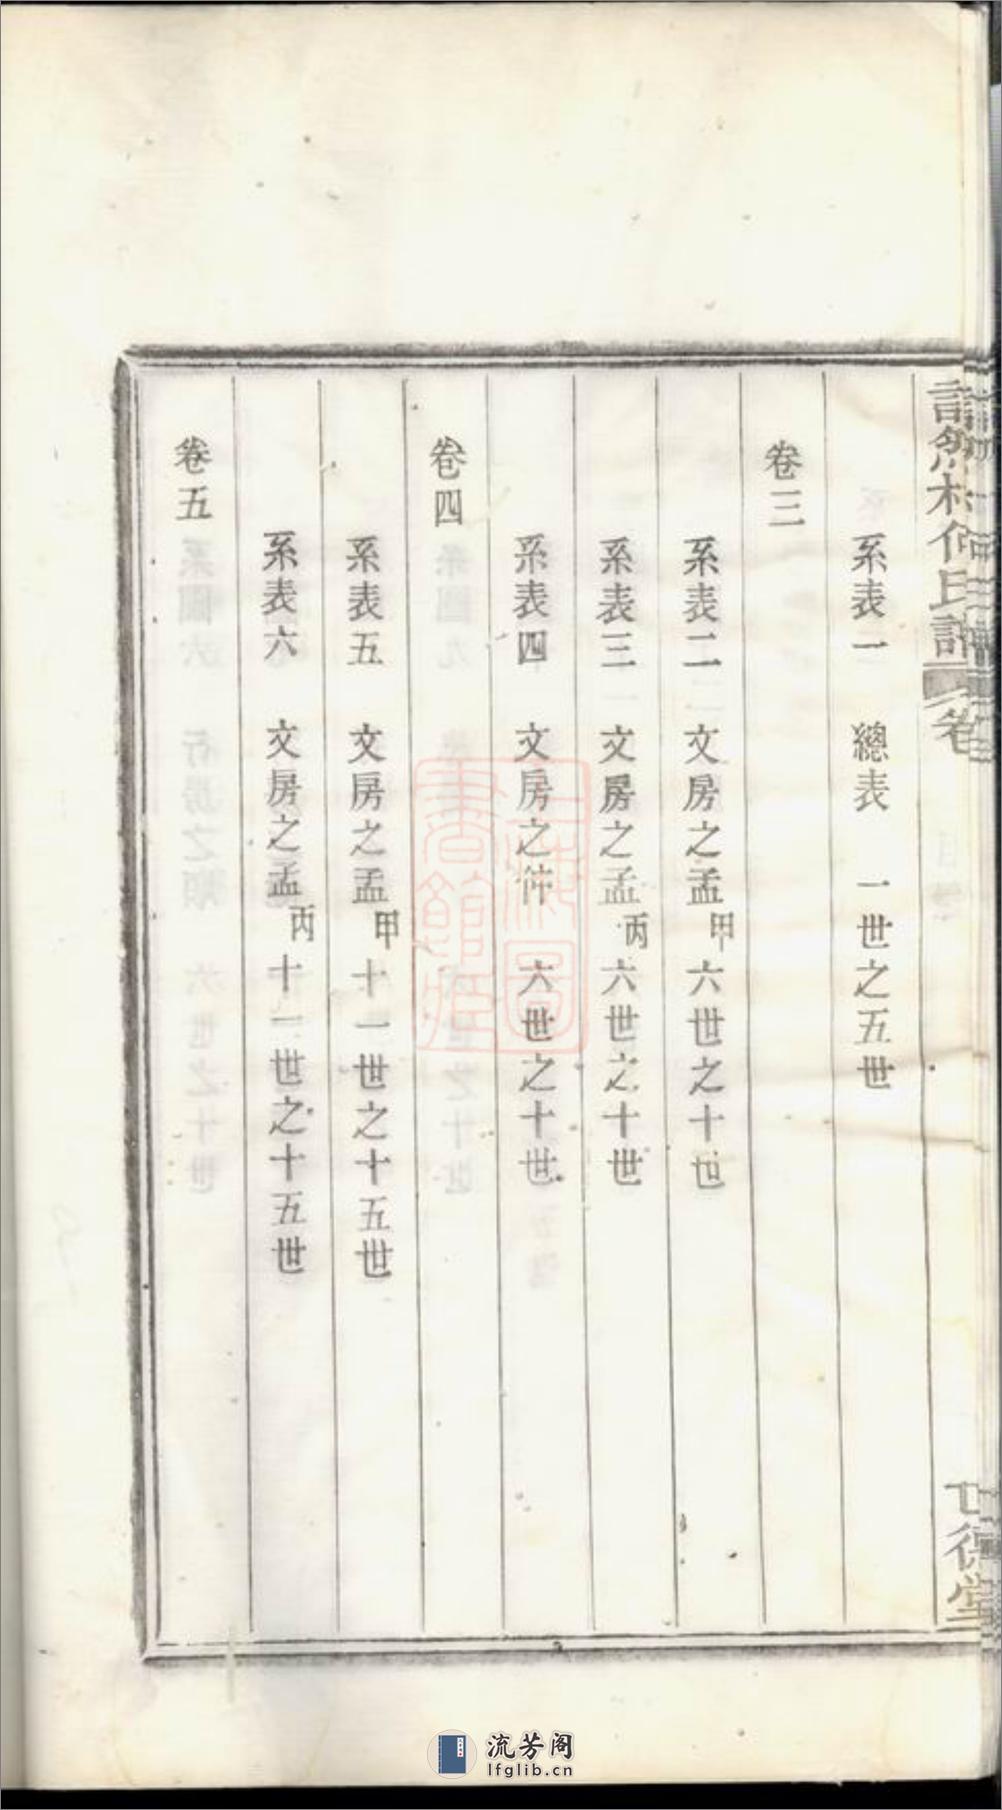 系表一　總表　一世之五世
卷三
系表二　文房之孟甲六世之十世
系表三　文房之孟丙六世之十世
系表四　文房之仲　六世之十世
卷四
系表五　文房之孟甲十一世之十五世
系表六　文房之孟丙十一世之十五世
卷五
世德堂
流芳阁
lfglib.cn